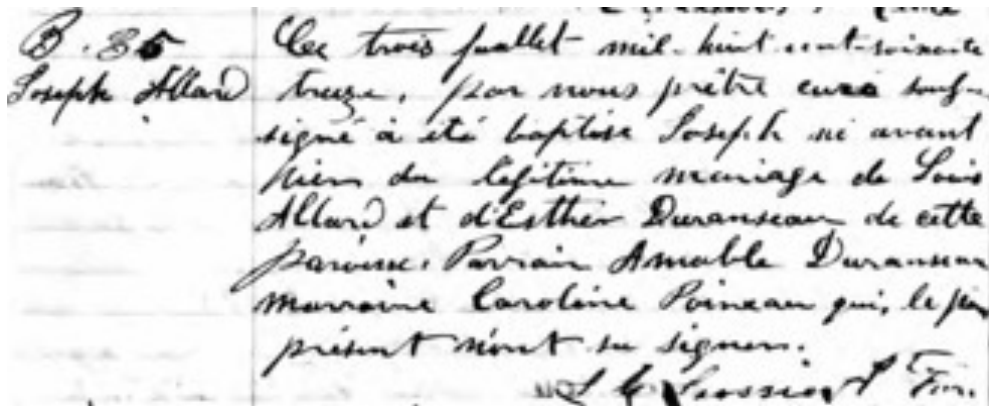 B. 85
Joseph Allard
Ce trois juillet mil-huit-cent-soixante
treize, par nous prêtre curé souș-
signé à été baptisé Joseph né avant
hier du légitime mariage de Louis
Allard et d'Esther Duranseau de cette
paroisse. Parrain Amable Duranseau
marraine Caroline Poineau qui, le père
présent n'ont su signer.